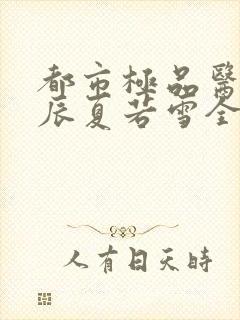 都市極品醫
辰夏若雪全
人有日天時